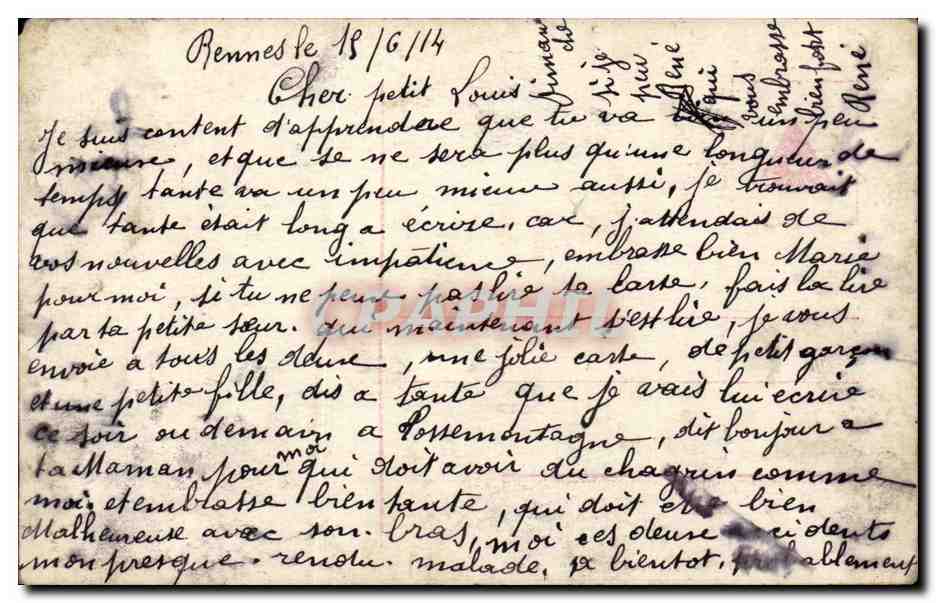 Rennes le 15/6/14
Cher petit Louis
Je suis content d'apprendre que tu va un peu
mieuxe, et que se ne sera plus qu'une longueur de
temps tante va un peu mieux aussi, je trouvait
que tante était long a écrire, car, j'attendais de
vos nouvelles avec impatience, embrasse bien Marie
pour moi, si tu ne peux pas lire ta carte, fais la lire
par ta petite sœur. qui maintenant s'est lire, je vous
envoie a tous les deux, une jolie carte, de petit garçon
et une petite fille, dis a tante que je vais lui écrire
ce soir ou demain a Possemontagne, dit bonjour a
ta Maman pour moi qui doit avoir du chagrin comme
moi. et embrasse bien tante, qui doit etre bien
Malheureuse avec son bras, moi ces deux accidents
mon presque rendu malade. a bientot, probablement
dimanche
si je
pui
René
qui
vous
embrasse
bien fort
René
CPAPHIL